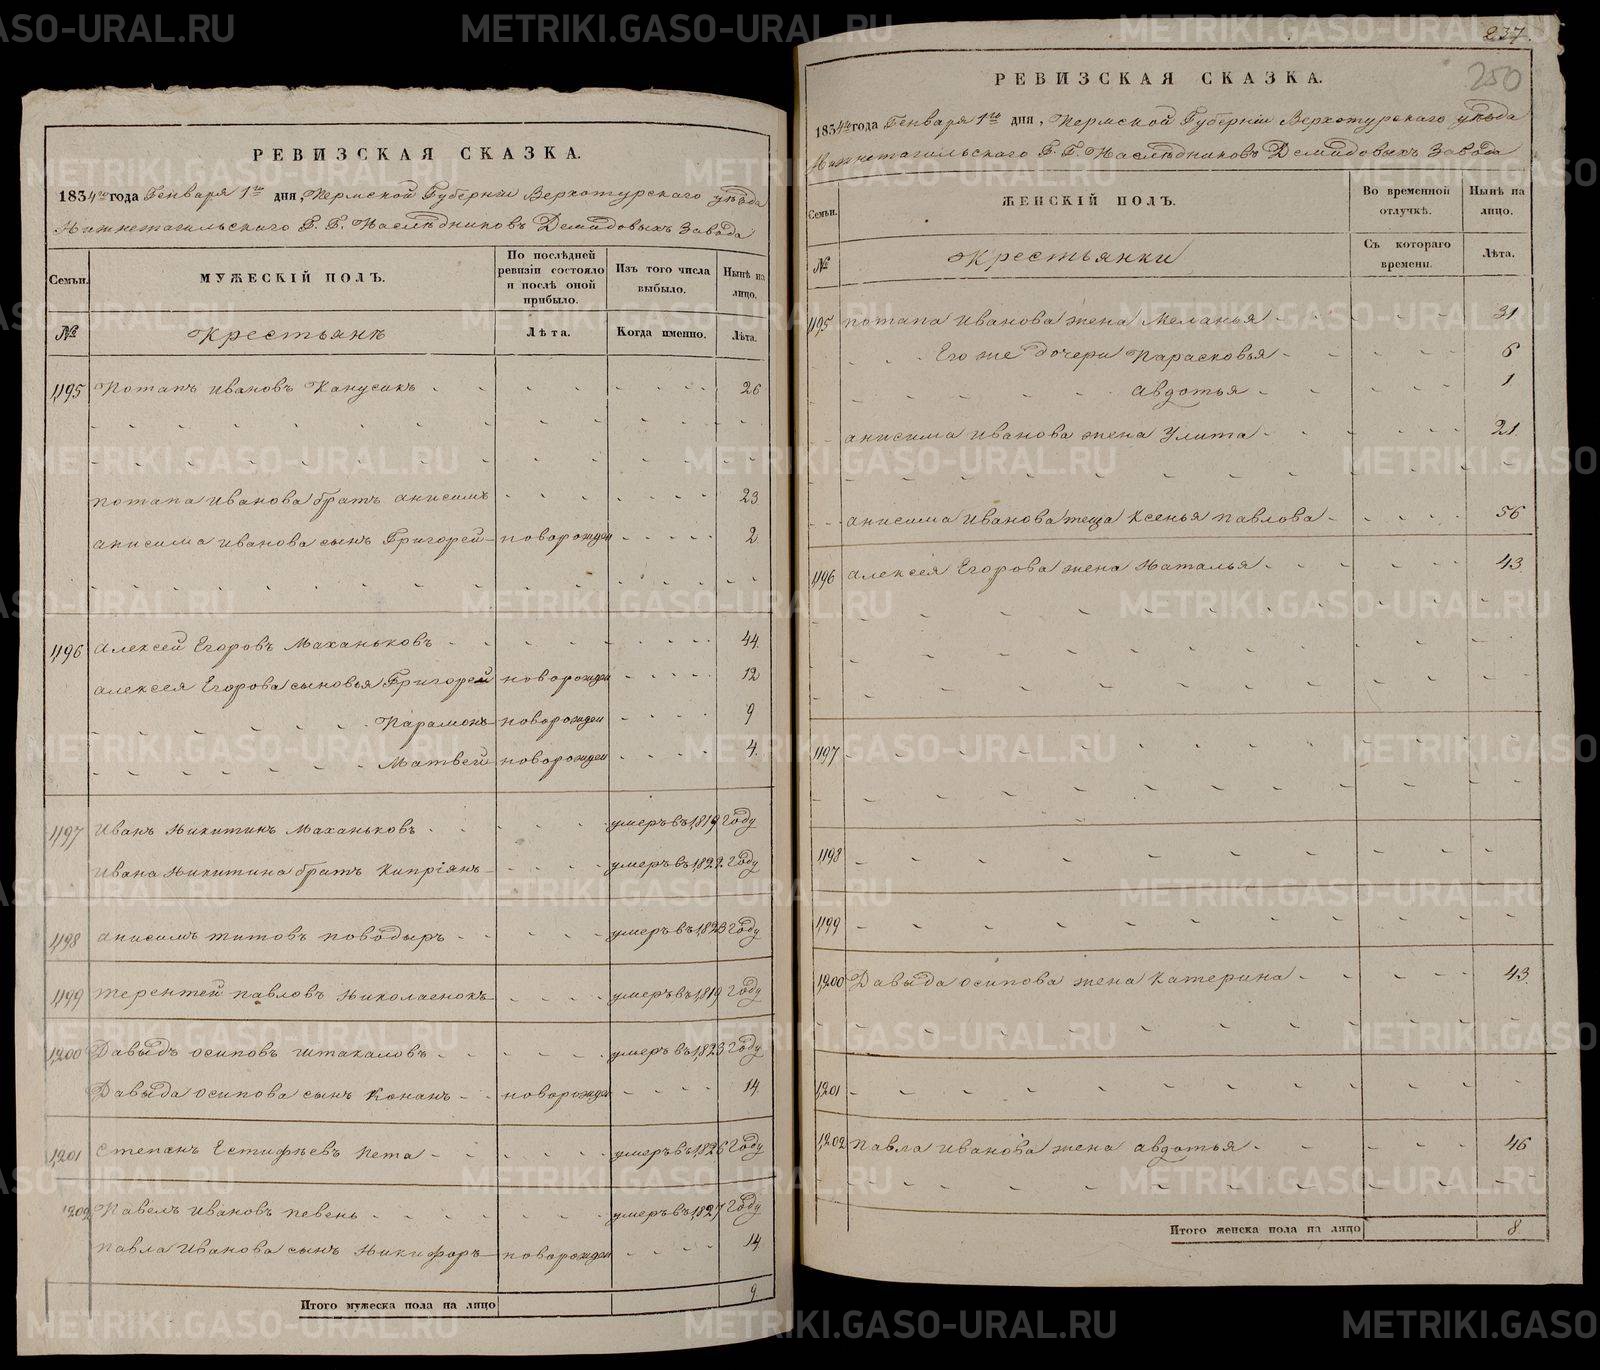 РЕВИЗСКАЯ СКАЗКА.
1834го года Генваря 1го дня, Пермской Губерніи Верхотурскаго уѣзда
Нижнетагильскаго Г. Г. Наслѣдниковъ Демидовыхъ Завода
Семьи. МУЖЕСКІЙ ПОЛЪ. По послѣдней ревизіи состояло и послѣ оной прибыло. Изъ того числа выбыло. Нынѣ на лицо.
№ Крестьянъ Лѣта. Когда именно. Лѣта.
1,195 Потапъ Ивановъ Канусикъ 26
потапа Иванова братъ анисимъ 23
анисима Иванова сынъ Григорей новорожден 2
1,196 Алексей Егоровъ Маханьковъ 44
алексея Егорова сыновья Григорей новорожден 12
Парамонъ новорожден 9
Матвей новорожден 4
1,197 Иванъ Никитинъ Маханьковъ умеръ въ 1,819 году
Ивана Никитина братъ Кипріянъ умеръ въ 1,822 году
1,198 анисимъ титовъ поводыръ умеръ въ 1,823 году
1,199 терентей павловъ Николаенокъ умеръ въ 1,819 году
1,200 Давыдъ осиповъ штакаловъ умеръ въ 1,823 году
Давыда осипова сынъ Конанъ новорожден 14
1,201 Степанъ Естифѣевъ пета умеръ въ 1,826 году
1,202 Павелъ Ивановъ певень умеръ въ 1,827 году
павла Иванова сынъ Никифоръ новорожден 14
Итого мужеска пола на лицо 9
237.
250
РЕВИЗСКАЯ СКАЗКА.
1834го года Генваря 1го дня, Пермской Губерніи Верхотурскаго уѣзда
Нижнетагильскаго Г. Г. Наслѣдниковъ Демидовыхъ Завода
Семьи. ЖЕНСКІЙ ПОЛЪ. Во временной отлучкѣ. Нынѣ на лицо.
№ Крестьянки Съ котораго времени. Лѣта.
1,195 потапа Иванова жена Меланья 31
Его же дочери Парасковья 6
авдотья 1
анисима Иванова жена Улита 21
анисима Иванова теща Ксенья павлова 56
1,196 алексея Егорова жена Наталья 43
1,197
1,198
1,199
1,200 Давыда осипова жена Катерина 43
1,201
1,202 павла Иванова жена авдотья 46
Итого женска пола на лицо 8
METRIKI.GASO-URAL.RU